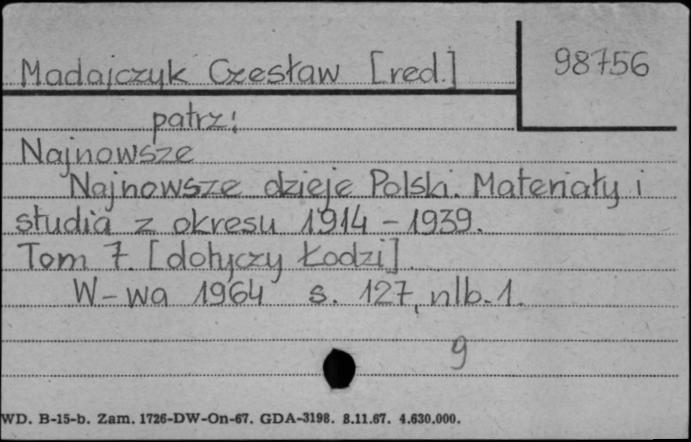 Madajczyk Czesław [red.]
98756
patrz:
Najnowsze
Najnowsze dzieje Polski. Materiały i
studia z okresu 1914 - 1939.
Tom 7. [dotyczy Łodzi].
W-wa 1964 s. 127, nlb. 1.
9
WD. B-15-b. Zam. 1726-DW-On-67. GDA-3198. 8.11.67. 4.630.000.